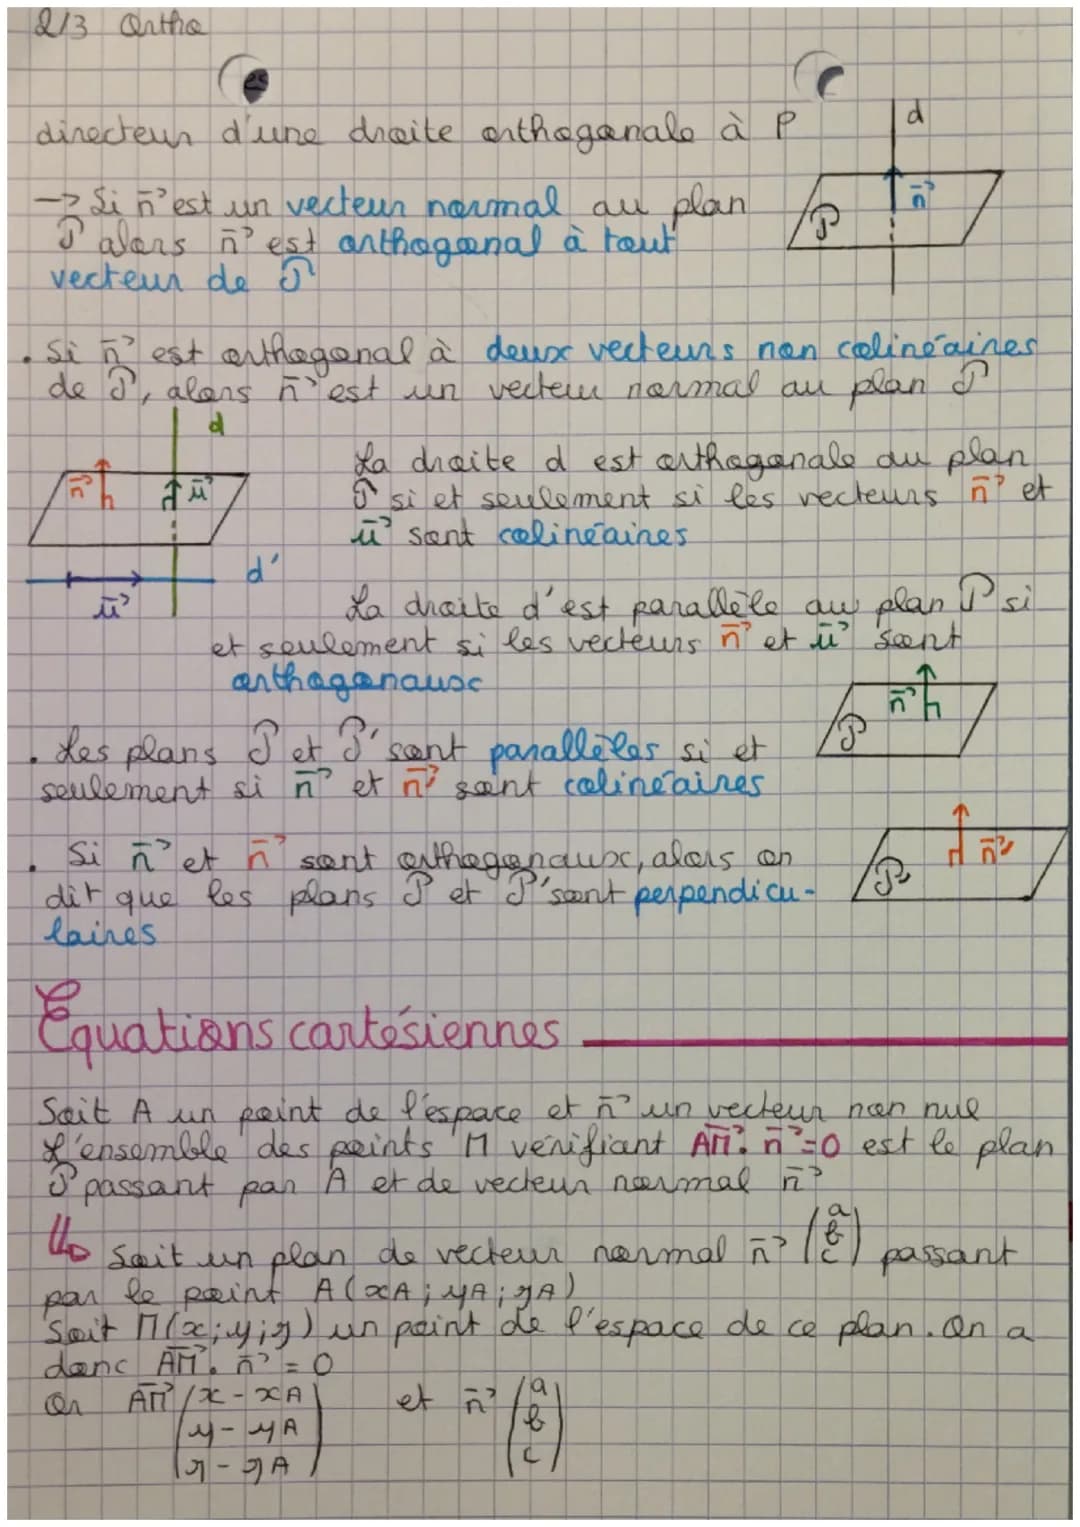 2/3 Ortho
es
directeur d'une droite orthogonale à P
d
→ Si n⃗ est un vecteur normal au plan
P alors n⃗ est orthogonal à tout
vecteur de P
P n⃗
• Si n⃗ est orthogonal à deux vecteurs non colinéaires
de P, alors n⃗ est un vecteur normal au plan P
d
n⃗ u⃗
d'
u⃗
La droite d est orthogonale au plan
P si et seulement si les vecteurs n⃗ et
u⃗ sont colinéaires
La droite d'est parallèle au plan P si
et seulement si les vecteurs n⃗ et u⃗ sont
orthogonaux
P n⃗
• Les plans P et P' sont parallèles si et
seulement si n⃗ et n⃗' sont colinéaires
P' n⃗'
• Si n⃗ et n⃗' sont orthogonaux, alors on
dit que les plans P et P' sont perpendicu-
laires
Équations cartésiennes
Soit A un point de l'espace et n⃗ un vecteur non nul
L'ensemble des points M vérifiant AM⃗ . n⃗ = 0 est le plan
P passant par A et de vecteur normal n⃗
↳ Soit un plan de vecteur normal n⃗ (a b c) passant
par le point A(xA ; yA ; zA)
Soit M(x; y; z) un point de l'espace de ce plan. On a
donc AM⃗ . n⃗ = 0
Or AM⃗ (x - xA et n⃗ (a
y - yA b
z - zA) c)